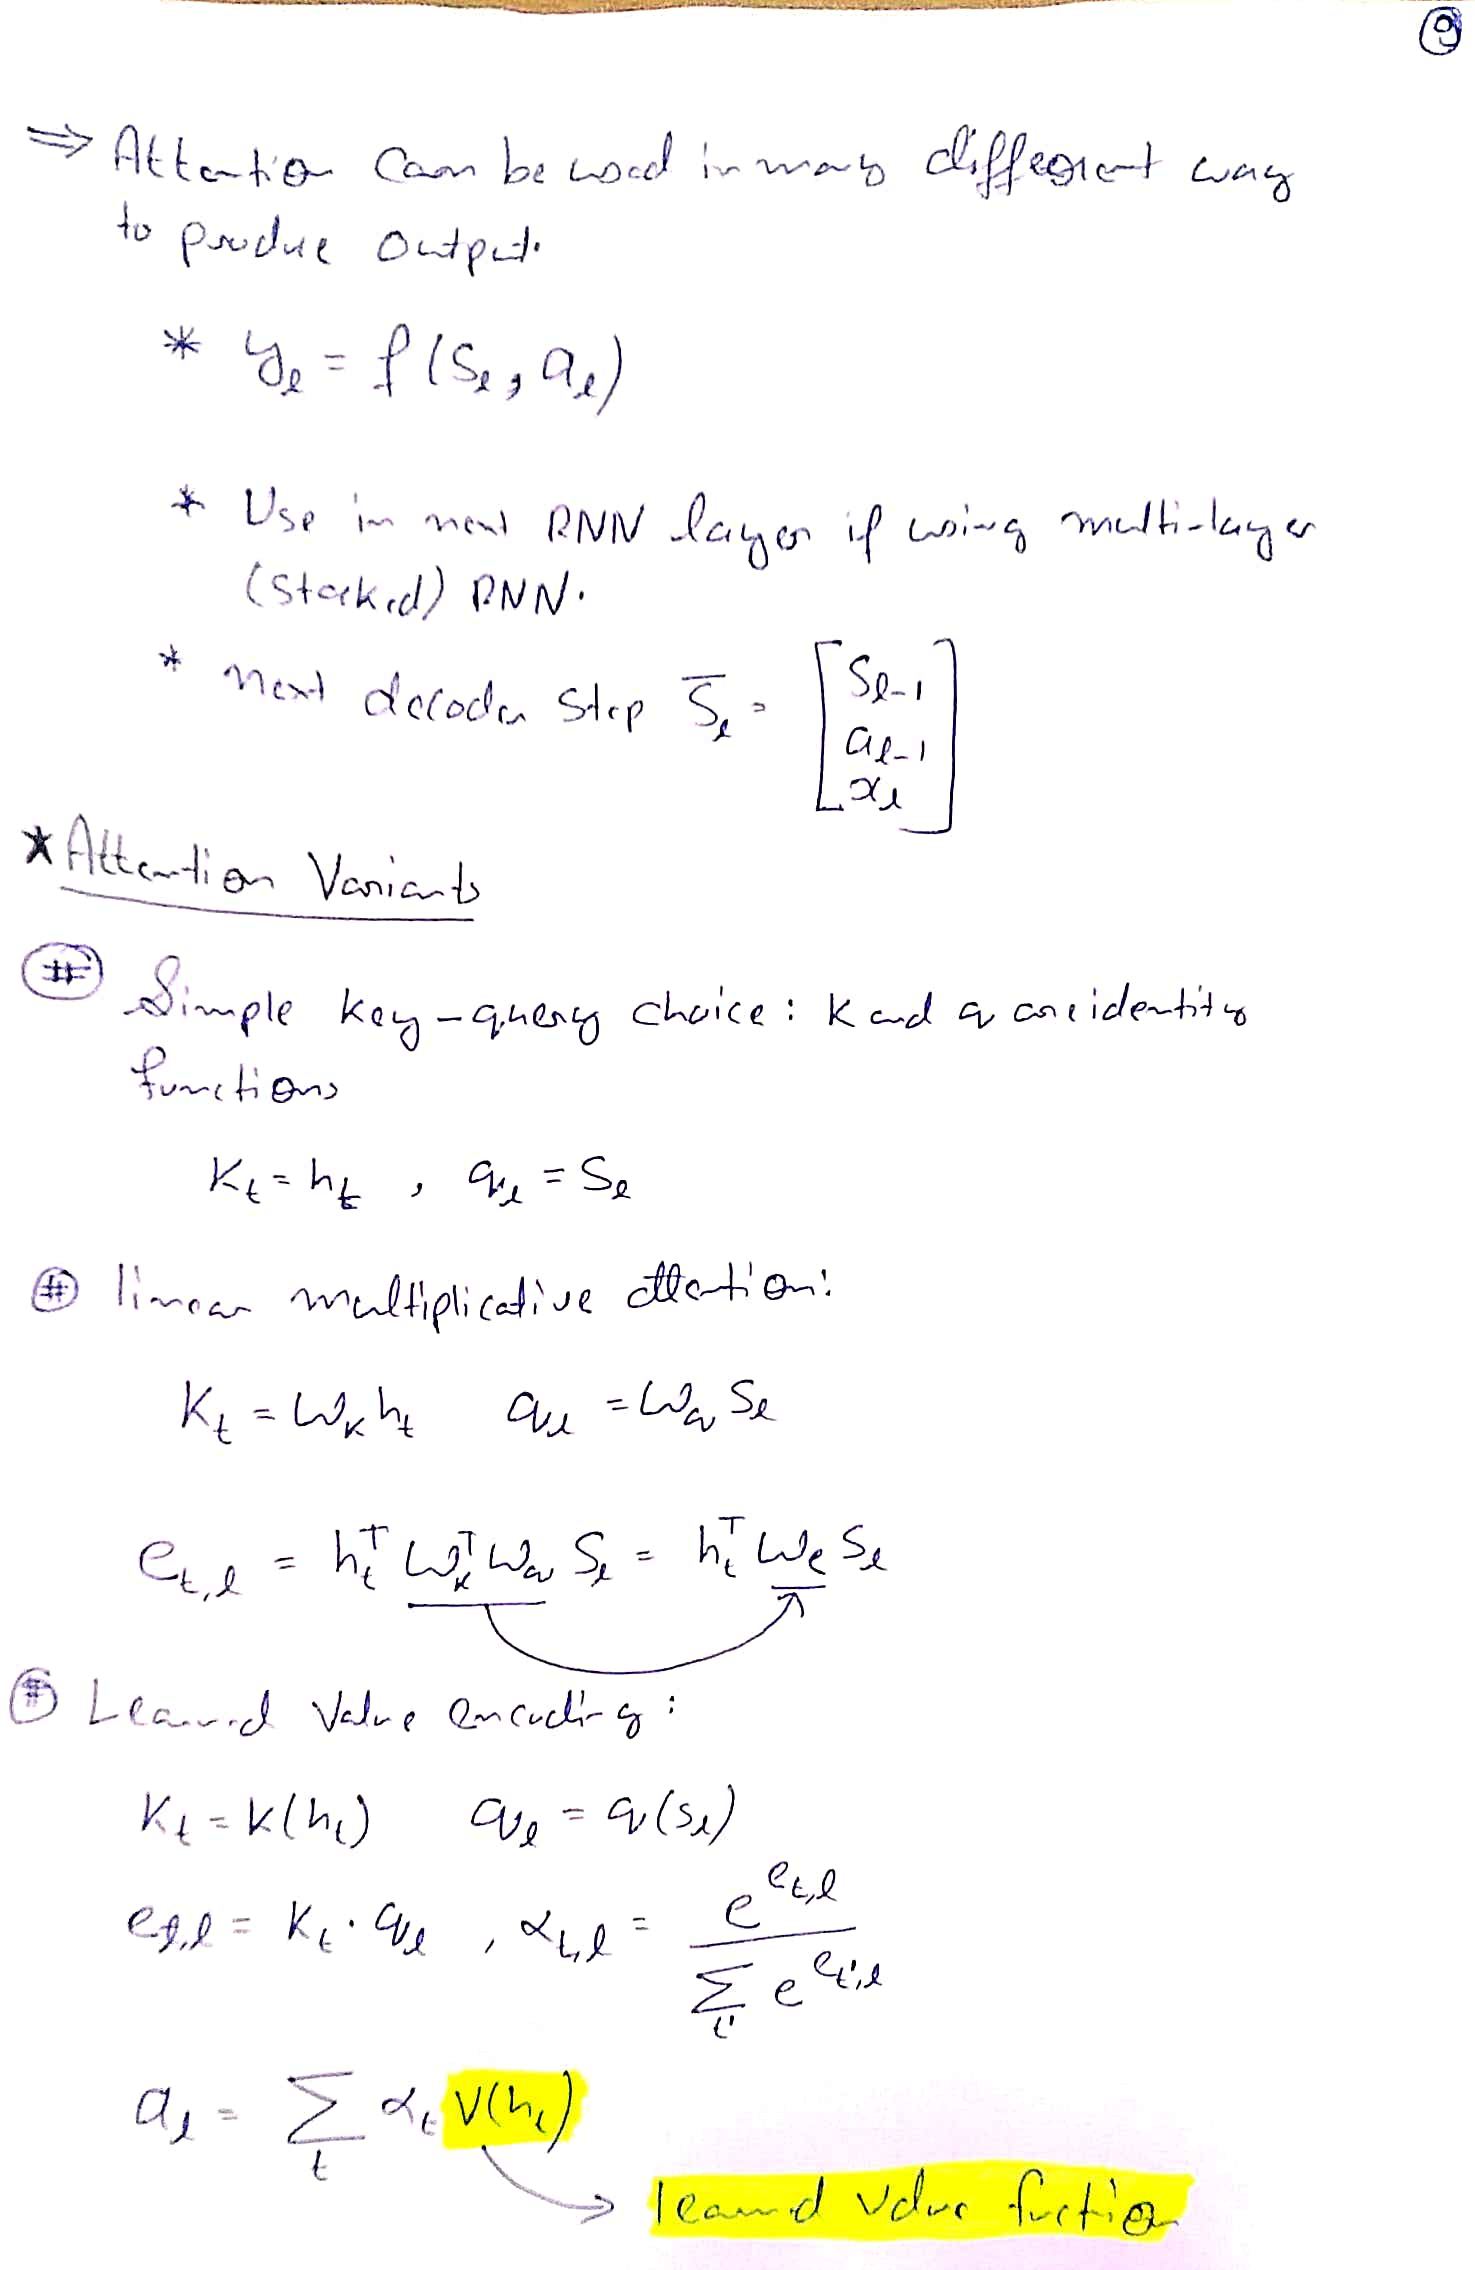 9
⇒ Attention can be used in many different way
to produce output.
* y_l = f(S_l, a_l)
* Use in next RNN layer if using multi-layer
(stacked) RNN.
* next decoder step S̅_l = [S_{l-1}
a_{l-1}
x_l]
* Attention Variants
# Simple key-query choice: k and q are identity
functions
K_t = h_t , q_l = S_l
# linear multiplicative attention:
K_t = W_k h_t q_l = W_q S_l
e_{t,l} = h_t^T W_k^T W_q S_l = h_t^T W_e S_l
# Learned Value encoding:
K_t = k(h_t) q_l = q(s_l)
e_{t,l} = K_t · q_l , α_{t,l} = e^{e_{t,l}} / Σ_{t'} e^{e_{t',l}}
a_l = Σ_t α_t V(h_t)
→ learned value function